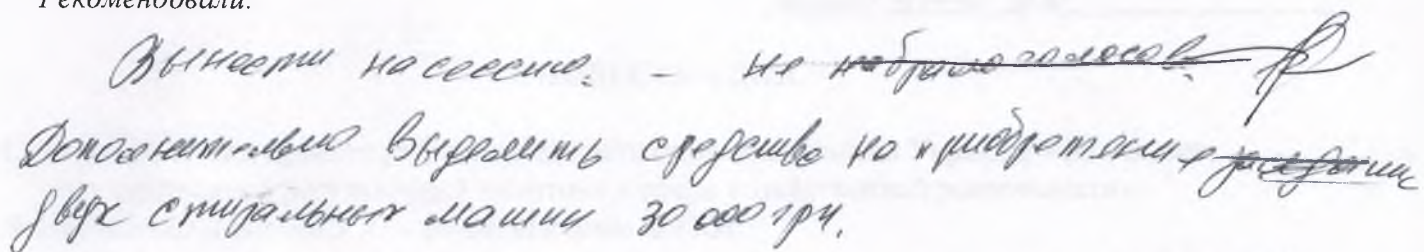 Рекомендовали:
Вынести на сессию. - не набрало голосов.
Дополнительно выделить средства на приобретение
двух стиральных машин 30 000 грн.